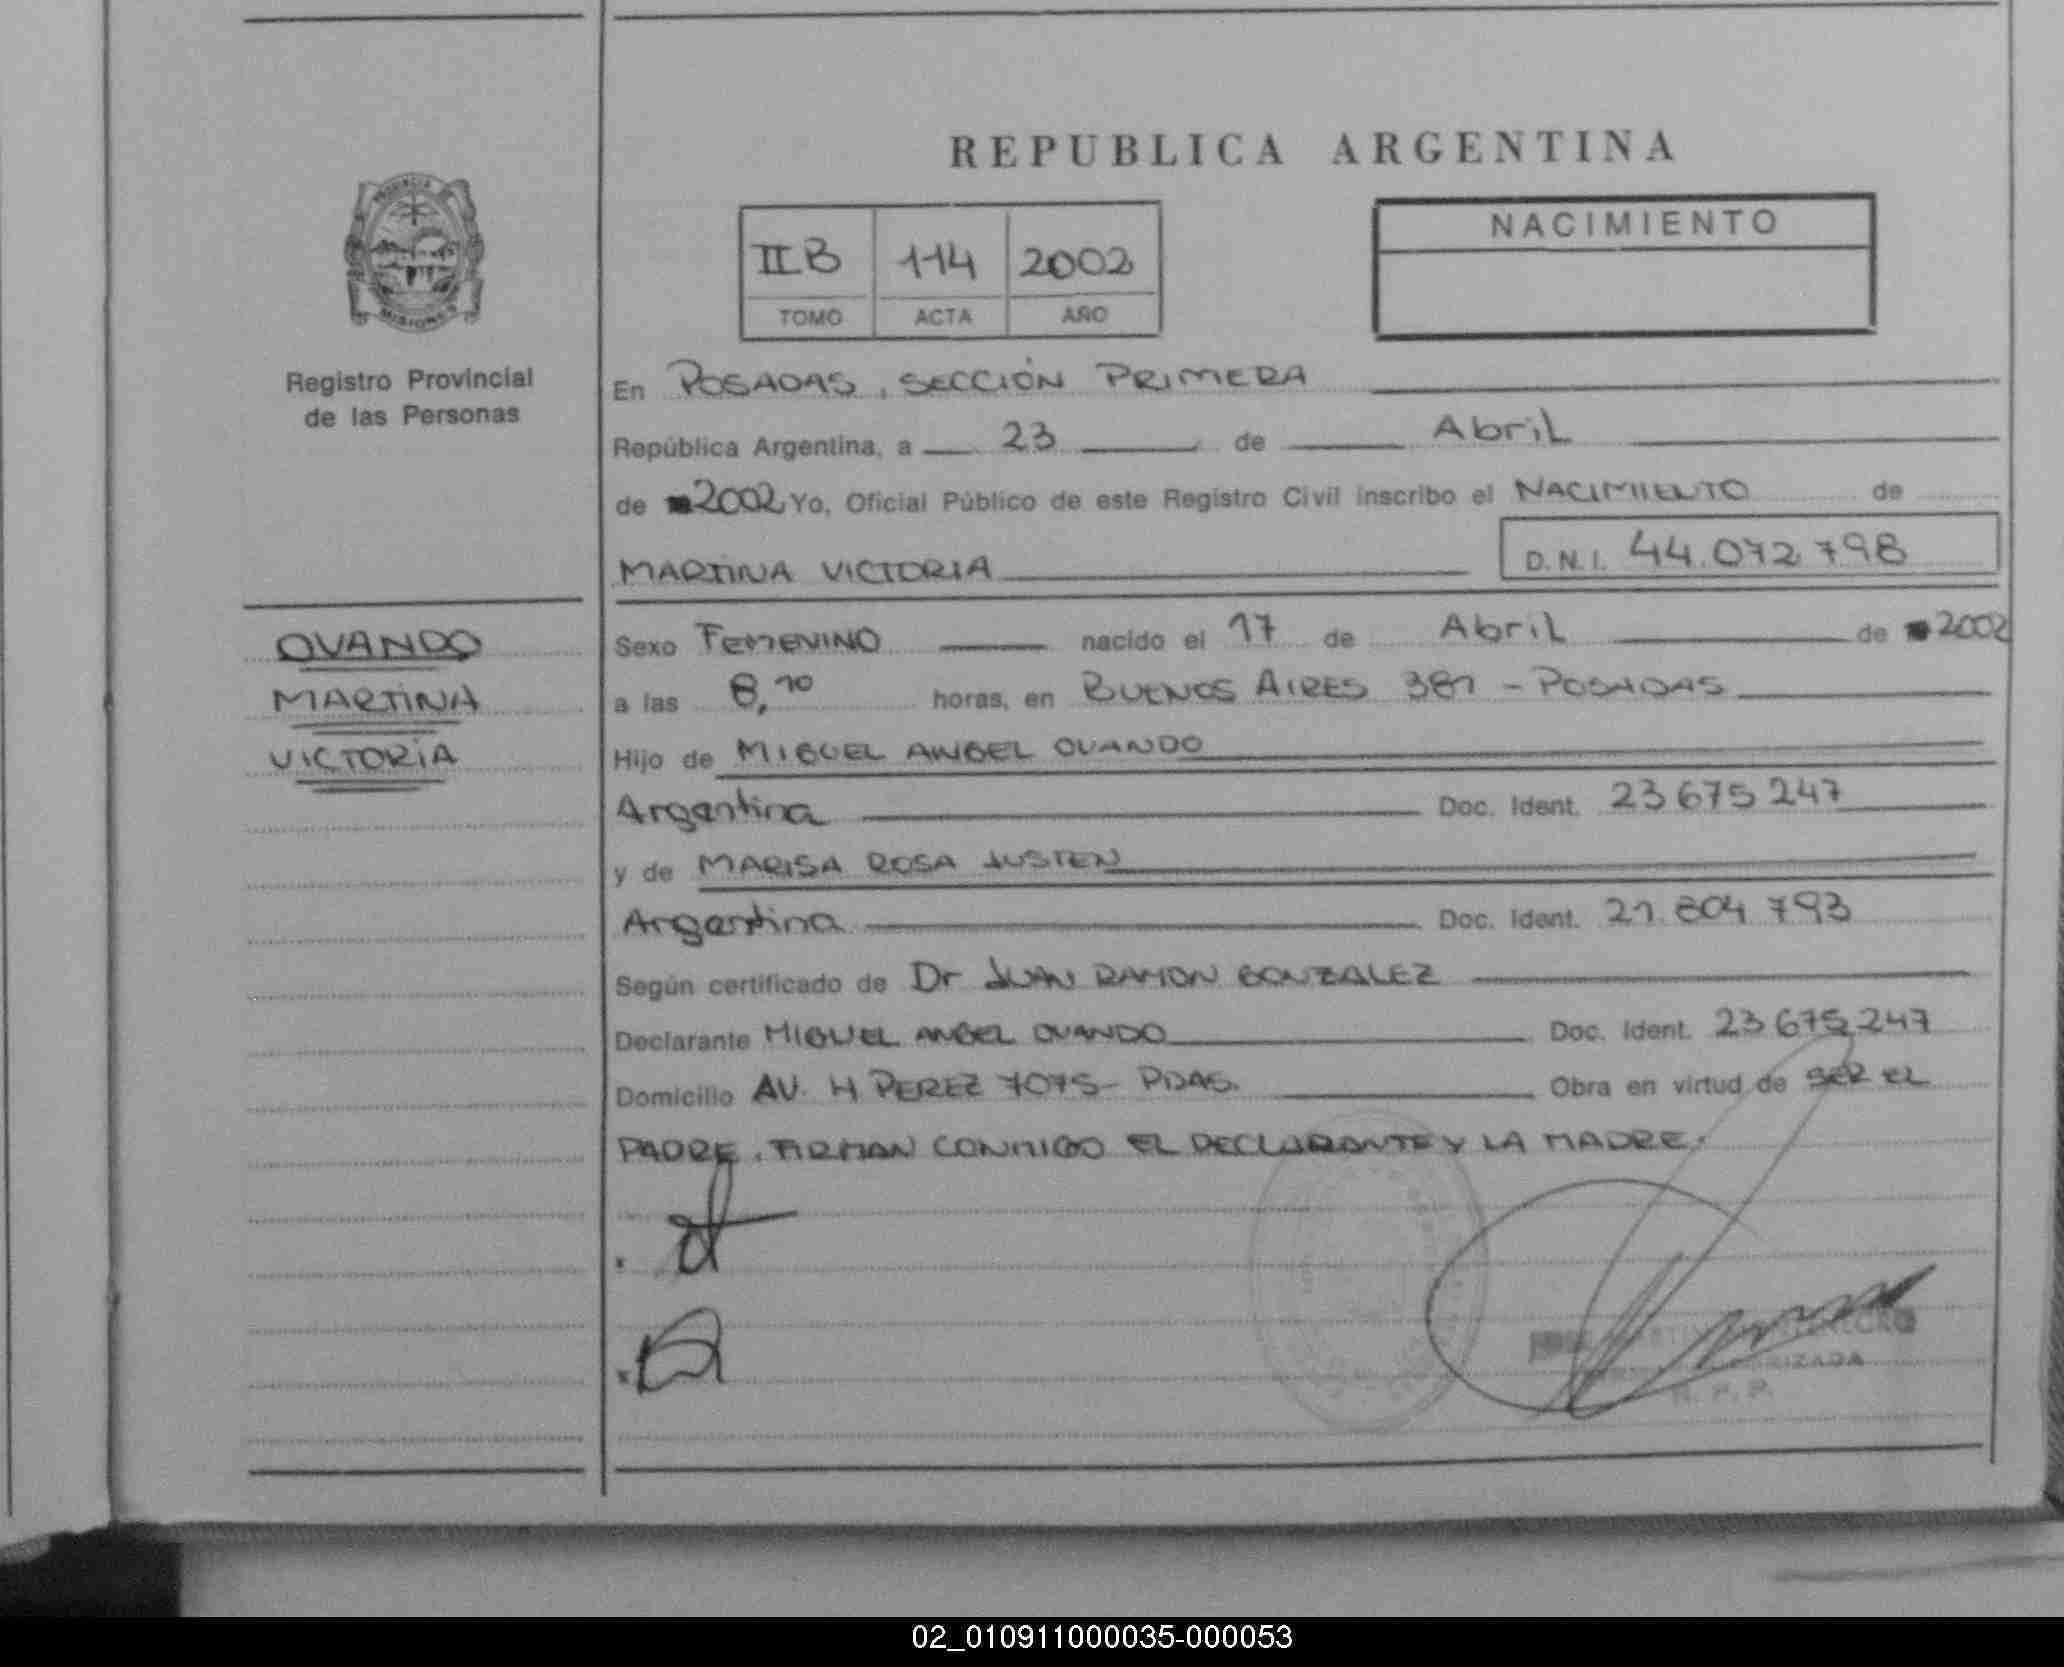 REPUBLICA ARGENTINA
PROVINCIA
MISIONES
Registro Provincial
de las Personas
IIB 114 2002
TOMO ACTA AÑO
NACIMIENTO
En POSADAS, SECCIÓN PRIMERA
República Argentina, a 23 de Abril
de 2002 Yo, Oficial Público de este Registro Civil inscribo el NACIMIENTO de
MARTINA VICTORIA D.N.I. 44.072.798
OVANDO
MARTINA
VICTORIA
Sexo FEMENINO nacido el 17 de Abril de 2002
a las 8,10 horas, en BUENOS AIRES 381 - POSADAS
Hijo de MIGUEL ANGEL OVANDO
Argentina Doc. Ident. 23 675 247
y de MARISA ROSA JUSTEN
Argentina Doc. Ident. 21.804 793
Según certificado de Dr JUAN RAMON GONZALEZ
Declarante MIGUEL ANGEL OVANDO Doc. Ident. 23 675 247
Domicilio AV. H PEREZ 7075 - PDAS. Obra en virtud de SER EL
PADRE. FIRMAN CONMIGO EL DECLARANTE Y LA MADRE.
R. P. P.
02_010911000035-000053